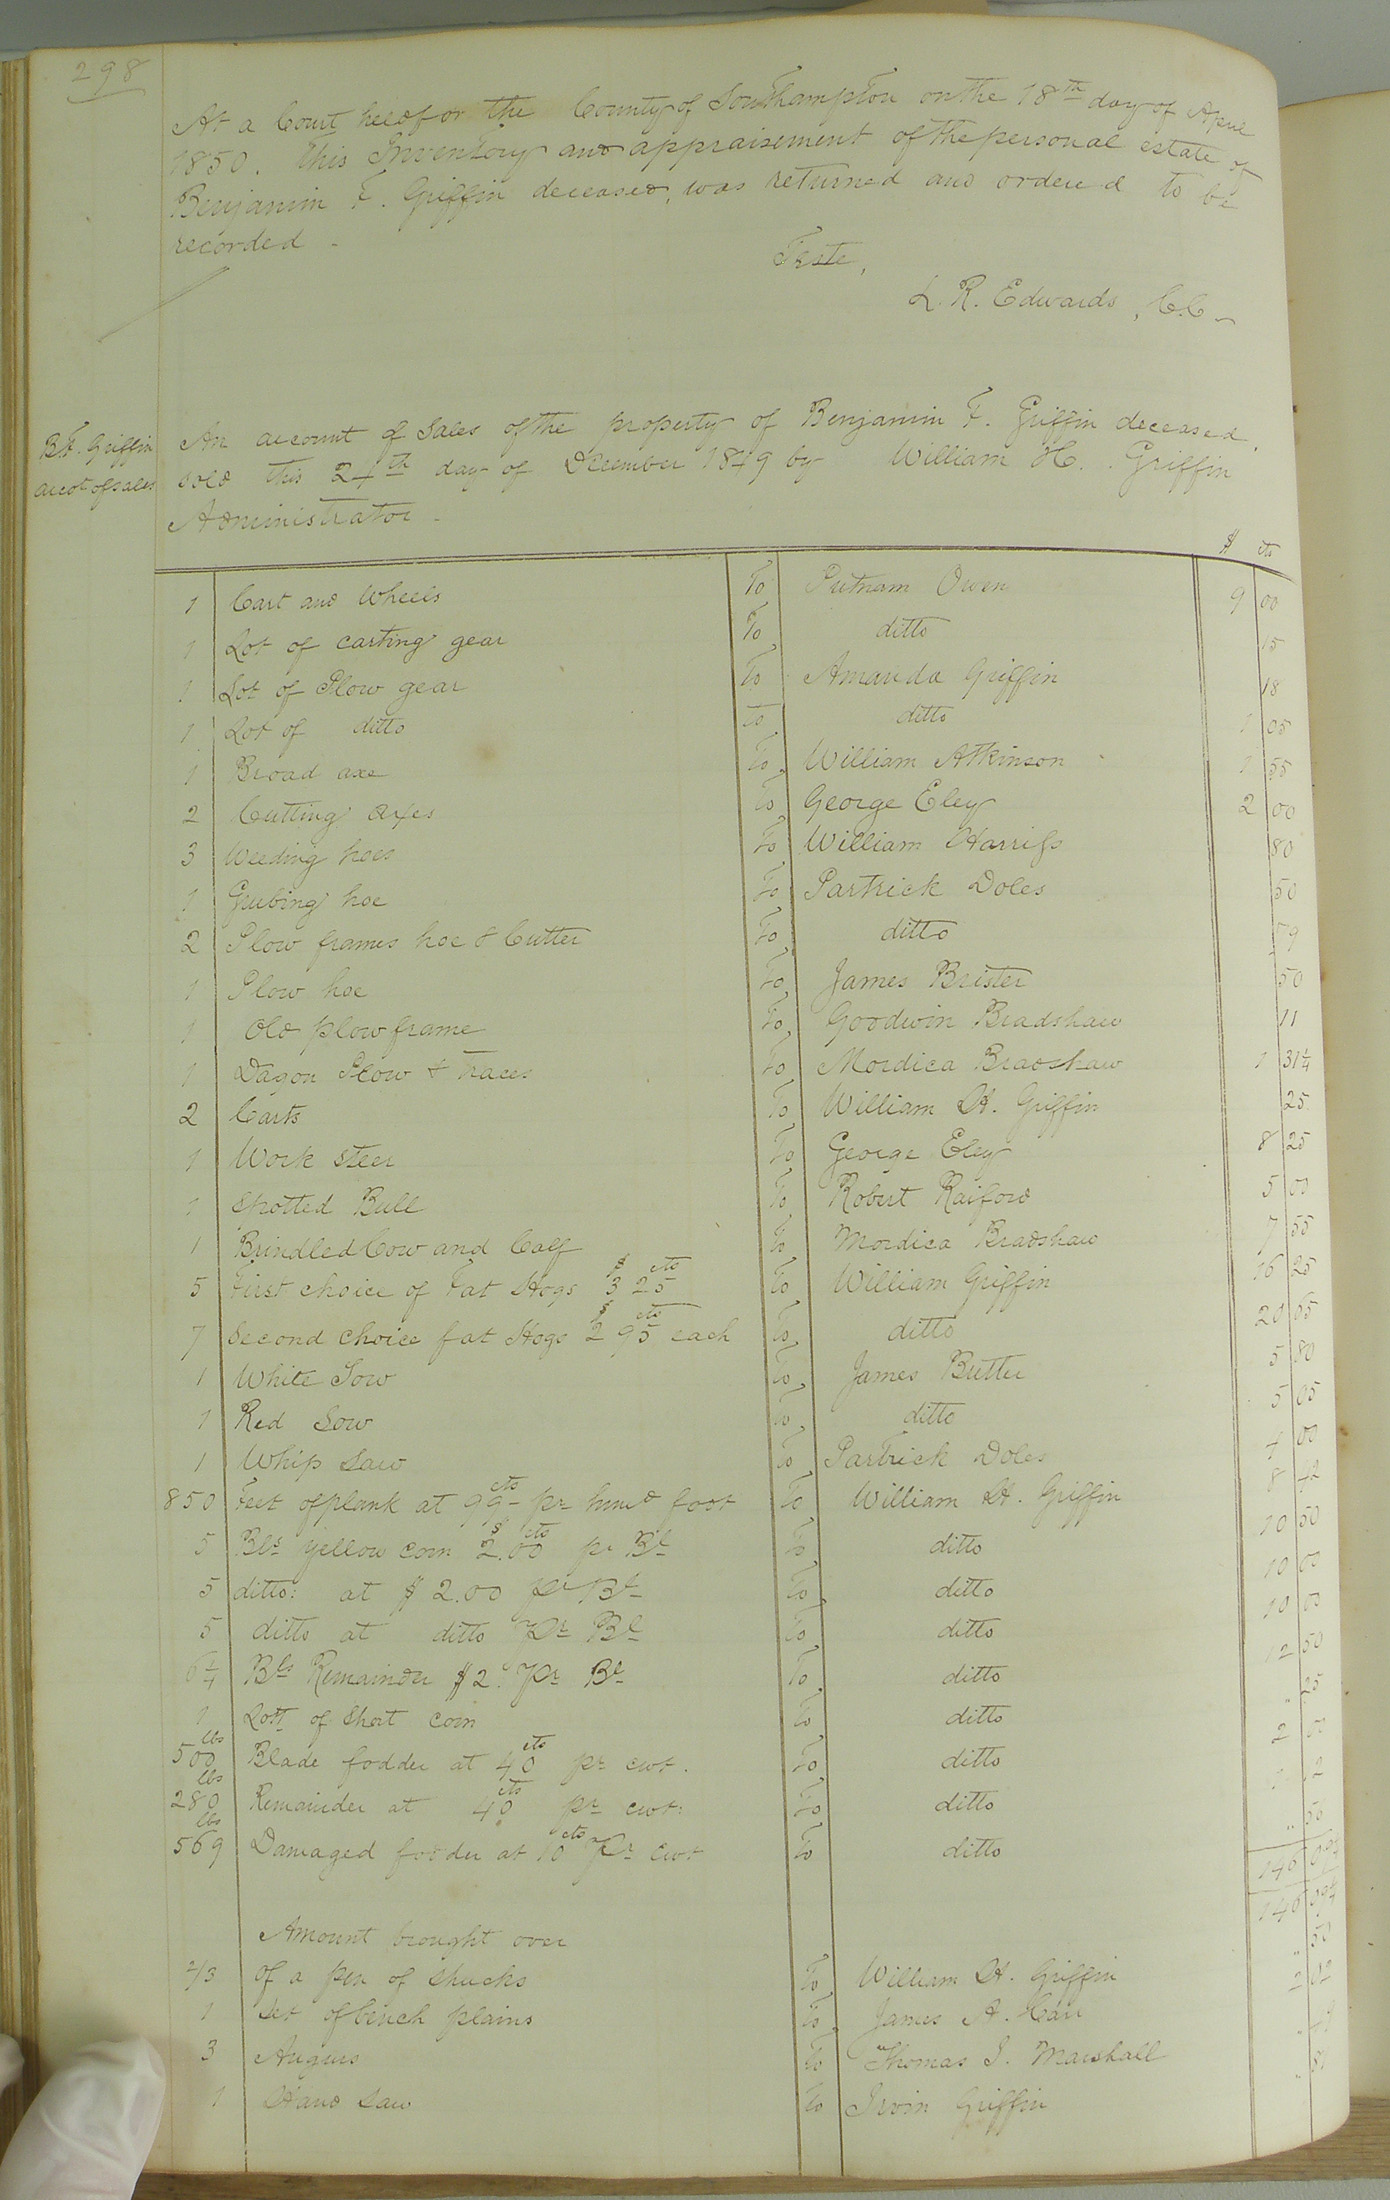 298
At a Court held for the County of Southampton on the 18th day of April
1850. This Inventory and appraisement of the personal estate of
Benjamin F. Griffin deceased, was returned and ordered to be
recorded -
Teste,
L. R. Edwards, C.C -
B.F. Griffin
accot of sales
An account of Sales of the property of Benjamin F. Griffin deceased,
sold this 24th day of December 1849 by William H. Griffin
Administrator -
$ cts
1 Cart and Wheels To Putnam Owen 9 00
1 Lot of carting gear To ditto 15
1 Lot of Plow gear To Amanda Griffin 18
1 Lot of ditto To ditto 1 05
1 Broad axe To William Atkinson 1 55
2 Cutting axes To George Eley 2 00
3 Weeding hoes To William Harriss 80
1 Grubing hoe To Partrick Doles 50
2 Plow frames hoe & Cutter To ditto 59
1 Plow hoe To James Brister 50
1 Old plow frame To Goodwin Bradshaw 11
1 Dagon Plow & traces To Mordica Bradshaw 1 31¼
2 Carts To William H. Griffin 25
1 Work steer To George Eley 8 25
1 Spotted Bull To Robert Raiford 5 00
1 Brindled Cow and Calf To Mordica Bradshaw 7 55
5 First choice of Fat Hogs $3 25cts To William Griffin 16 25
7 Second choice fat Hogs $2 95cts each To ditto 20 65
1 White Sow To James Butler 5 80
1 Red Sow To ditto 5 05
1 Whip Saw To Partrick Doles 4 00
850 Feet of plank at 99cts pr hund foot To William H. Griffin 8 42
5 Bls yellow corn $2.00cts pr Bl To ditto 10 50
5 ditto: at $2.00 pr Bl To ditto 10 00
5 ditto at ditto Pr Bl To ditto 10 00
6¼ Bls Remainder $2. Pr Bl To ditto 12 50
1 Lott of Short corn To ditto " 25
500 lbs Blade fodder at 40cts pr cwt. To ditto 2 00
280 lbs Remainder at 40cts pr cwt: To ditto 1 12
569 lbs Damaged fodder at 10cts Pr cwt To ditto " 56
146 09¼
Amount brought over 146 09¼
2/3 of a pen of shucks To William H. Griffin " 50
1 set of bench plains To James A. Carr 2 02
3 Augurs To Thomas J. Marshall "
1 Hand saw To Irvin Griffin " 81